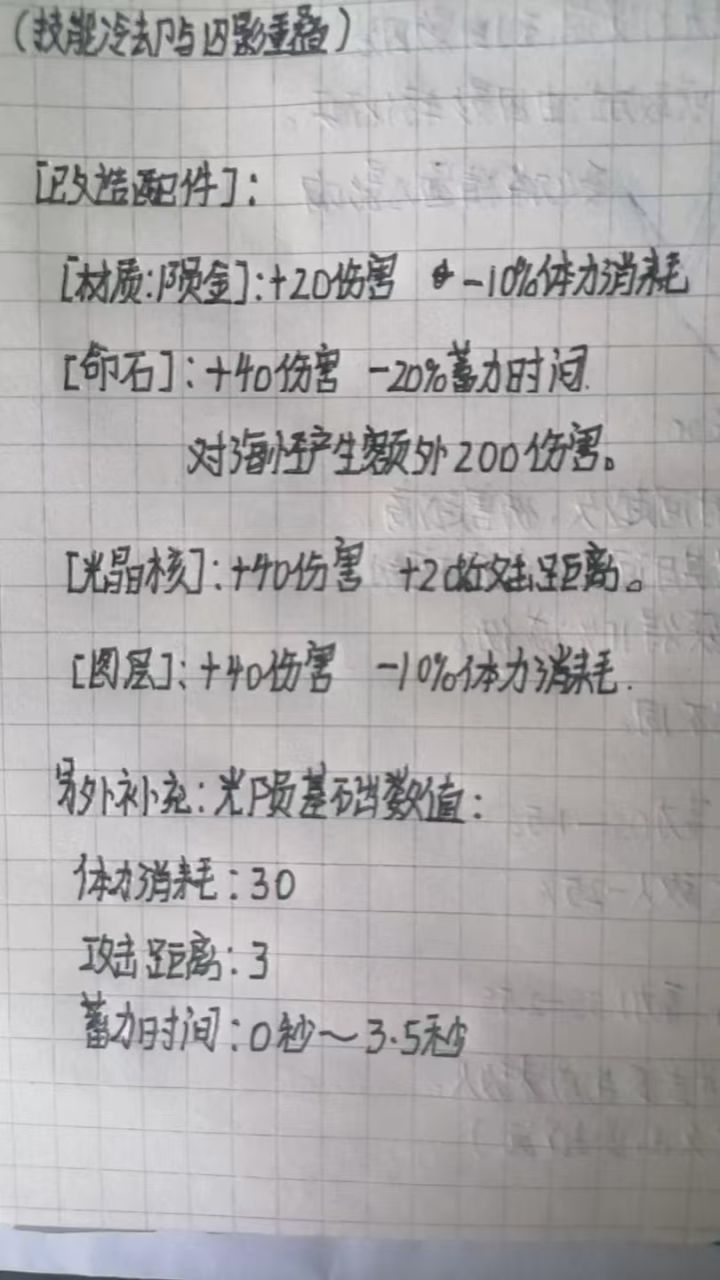 （技能冷却与囚影重叠）
[改造配件]：
[材质:陨金]:+20伤害 -10%体力消耗
[命石]:+40伤害 -20%蓄力时间.
对海怪产生额外200伤害。
[光晶核]:+40伤害 +2格攻击距离。
[图层]:+40伤害 -10%体力消耗.
另外补充:光陨基础数值:
体力消耗:30
攻击距离:3
蓄力时间:0秒～3.5秒